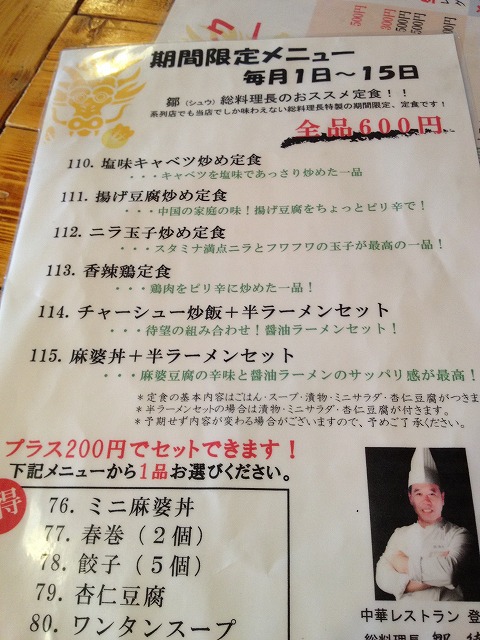 期間限定メニュー
毎月1日～15日
鄒（シュウ）総料理長のおススメ定食！！
系列店でも当店でしか味わえない総料理長特製の期間限定、定食です！
全品600円
110. 塩味キャベツ炒め定食
・・・キャベツを塩味であっさり炒めた一品
111. 揚げ豆腐炒め定食
・・・中国の家庭の味！揚げ豆腐をちょっとピリ辛で！
112. ニラ玉子炒め定食
・・・スタミナ満点ニラとフワフワの玉子が最高の一品！
113. 香辣鶏定食
・・・鶏肉をピリ辛に炒めた一品！
114. チャーシュー炒飯＋半ラーメンセット
・・・待望の組み合わせ！醤油ラーメンセット！
115. 麻婆丼＋半ラーメンセット
・・・麻婆豆腐の辛味と醤油ラーメンのサッパリ感が最高！
＊定食の基本内容はごはん・スープ・漬物・ミニサラダ・杏仁豆腐がつきま
＊半ラーメンセットの場合は漬物・ミニサラダ・杏仁豆腐が付きます。
＊予期せず内容が変わる場合がございますので、予めご了承ください。
プラス200円でセットできます！
下記メニューから1品お選びください。
得
76. ミニ麻婆丼
77. 春巻（2個）
78. 餃子（5個）
79. 杏仁豆腐
80. ワンタンスープ
中華レストラン 登
総料理長 鄒